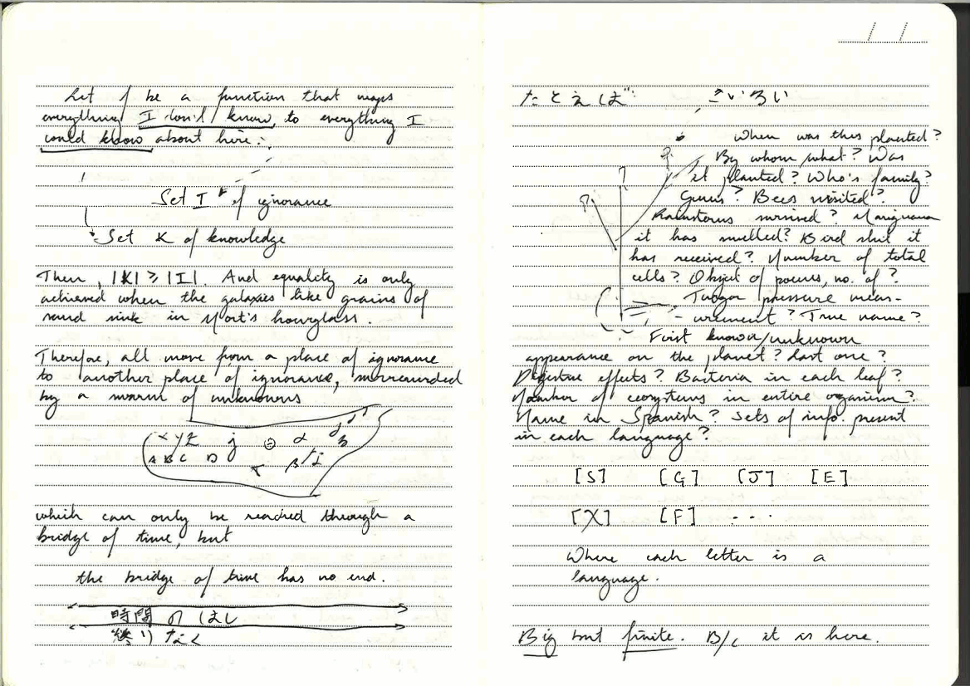 Let f be a function that maps
everything I don't know, to everything I
could know about here:
Set I of ignorance
Set K of knowledge
Then, |K| ≥ |I|. And equality is only
achieved when the galaxies like grains of
sand sink in Mort's hourglass.
Therefore, all move from a place of ignorance
to another place of ignorance, surrounded
by a swarm of unknowns
x y z j
A B C D
which can only be reached through a
bridge of time, but
the bridge of time has no end.
時間 の はし
終り なく
/ /
たとえば
When was this planted?
By whom/what? Was
it planted? Who's family?
Genus? Bees visited?
Rainstorms survived? Marijuana
it has smelled? Bird shit it
has received? Number of total
cells? Object of poems, no. of?
Turgor pressure meas-
urement? True name?
First known/unknown
appearance on the planet? Last one?
Digestive effects? Bacteria in each leaf?
Number of ecosystems in entire organism?
Name in Spanish? Sets of info. present
in each language?
[S] [G] [J] [E]
[X] [F] ...
Where each letter is a
language.
Big but finite. B/c it is here.